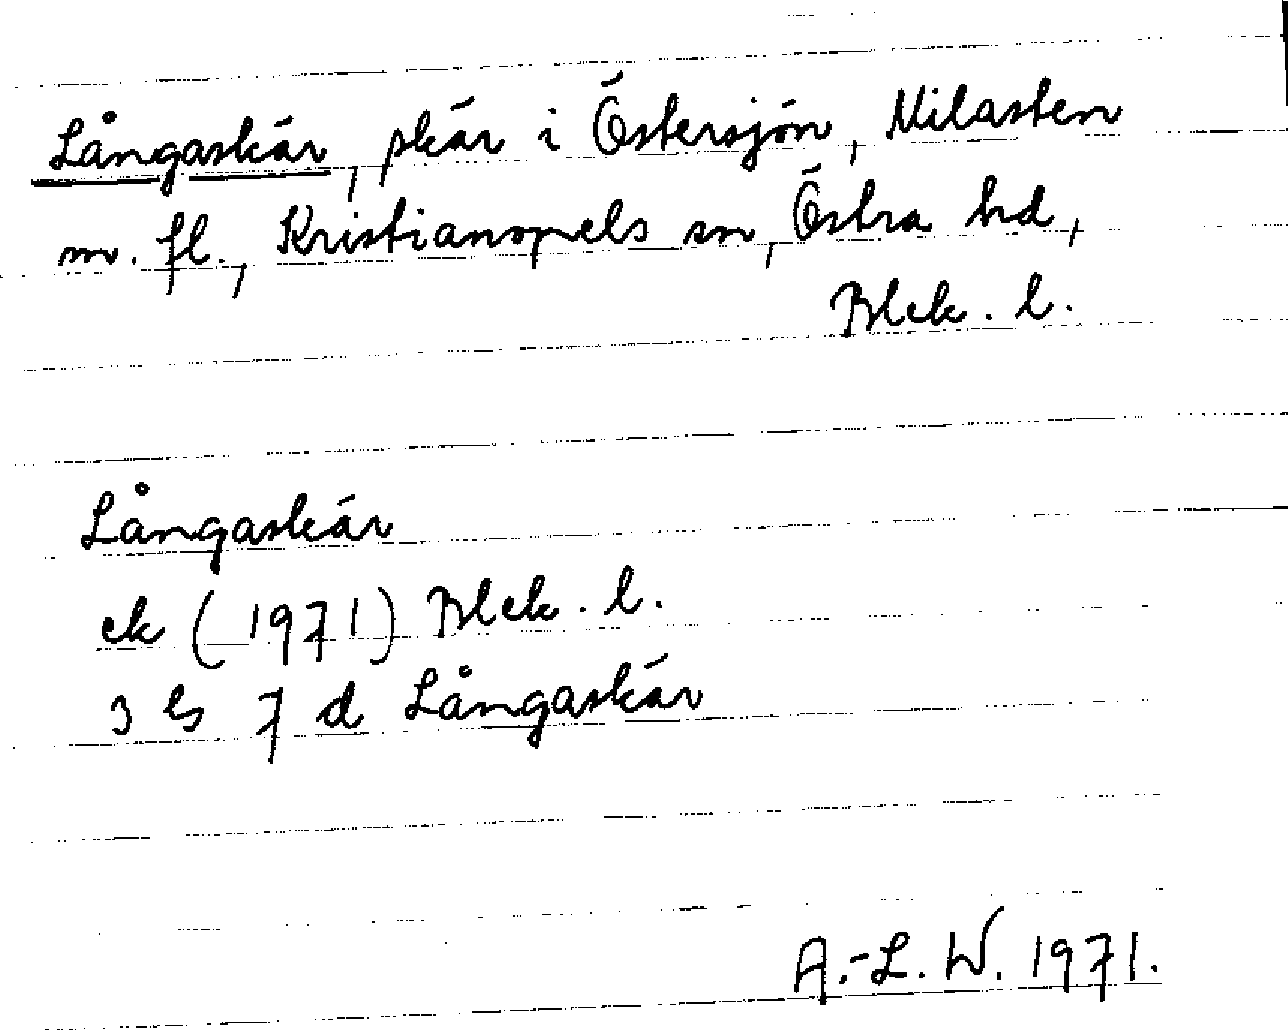 Långaskär, skär i Östersjön, Milasten
m. fl., Kristianopels sn, Östra hd,
Blek. l.
Långaskär
ek (1971) Blek. l.
3 G 7 d Långaskär
A.-L. W. 1971.